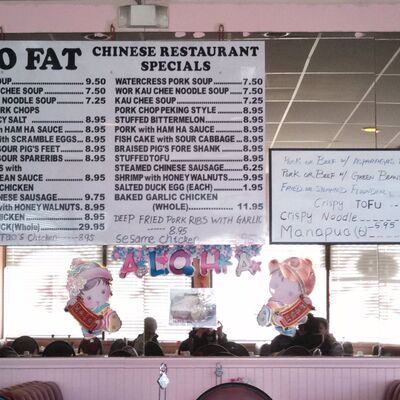 O FAT
CHINESE RESTAURANT
SPECIALS
SOUP 9.50
CHEE SOUP 7.50
NOODLE SOUP 7.25
PORK CHOPS
SALT 8.95
with HAM HA SAUCE 8.95
with SCRAMBLE EGGS 8.95
SOUR PIG'S FEET 8.95
SOUR SPARERIBS 8.95
with
BEAN SAUCE 8.95
CHICKEN
CHINESE SAUSAGE 9.75
with HONEY WALNUTS. 8.95
CHICKEN 8.95
(Whole) 29.95
Tao's Chicken 8.95
WATERCRESS PORK SOUP 7.50
WOR KAU CHEE NOODLE SOUP 7.25
KAU CHEE SOUP 7.25
PORK CHOP PEKING STYLE 8.95
STUFFED BITTERMELON 8.95
PORK with HAM HA SAUCE 8.95
FISH CAKE with SOUR CABBAGE 8.95
BRAISED PIG'S FORE SHANK 8.95
STUFFED TOFU 8.95
STEAMED CHINESE SAUSAGE 6.25
SHRIMP with HONEY WALNUTS 9.95
SALTED DUCK EGG (EACH) 1.95
BAKED GARLIC CHICKEN
(WHOLE) 11.95
DEEP FRIED PORK RIBS WITH GARLIC
8.95
Sesame chicken 8.95
PORK OR BEEF W/ ASPARAGUS
PORK OR BEEF W/ GREEN BEANS
FRIED OR STEAMED FLOUNDER
Crispy TOFU
Crispy Noodle
Manapua (6) -5.95
ALOHA